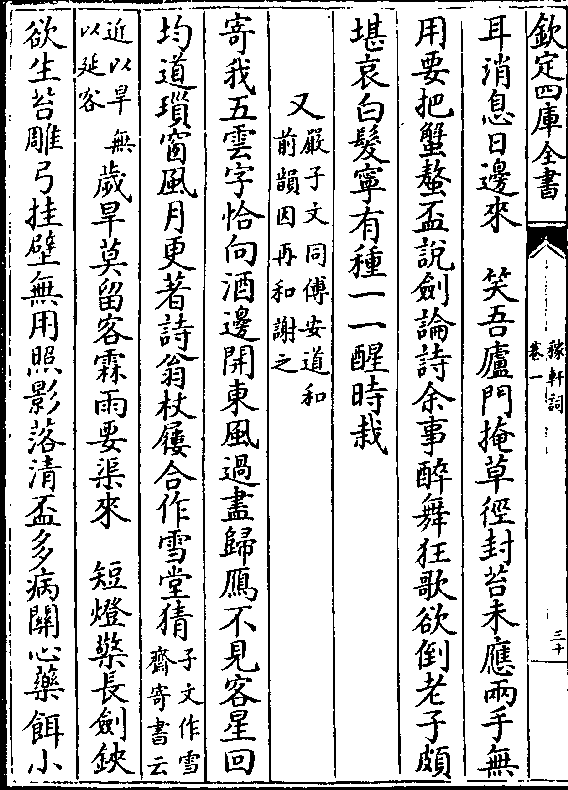 欽定四庫全書
稼軒詞
卷一
三十
耳消息日邊來　笑吾廬門掩草徑封苔未應兩手無
用要把蟹螯盃說劍論詩余事醉舞狂歌欲倒老子頗
堪哀白髮寜有種一一醒時栽
又
嚴子文同傅安道和
前韻因再和謝之
寄我五雲字恰向酒邊開東風過盡歸鴈不見客星回
均道瑣窗風月更著詩翁杖屨合作雪堂猜
子文作雪
齋寄書云
近以旱無
以延客
歲旱莫留客霖雨要渠來　短燈檠長劍鋏
欲生苔雕弓挂壁無用照影落清盃多病關心藥餌小